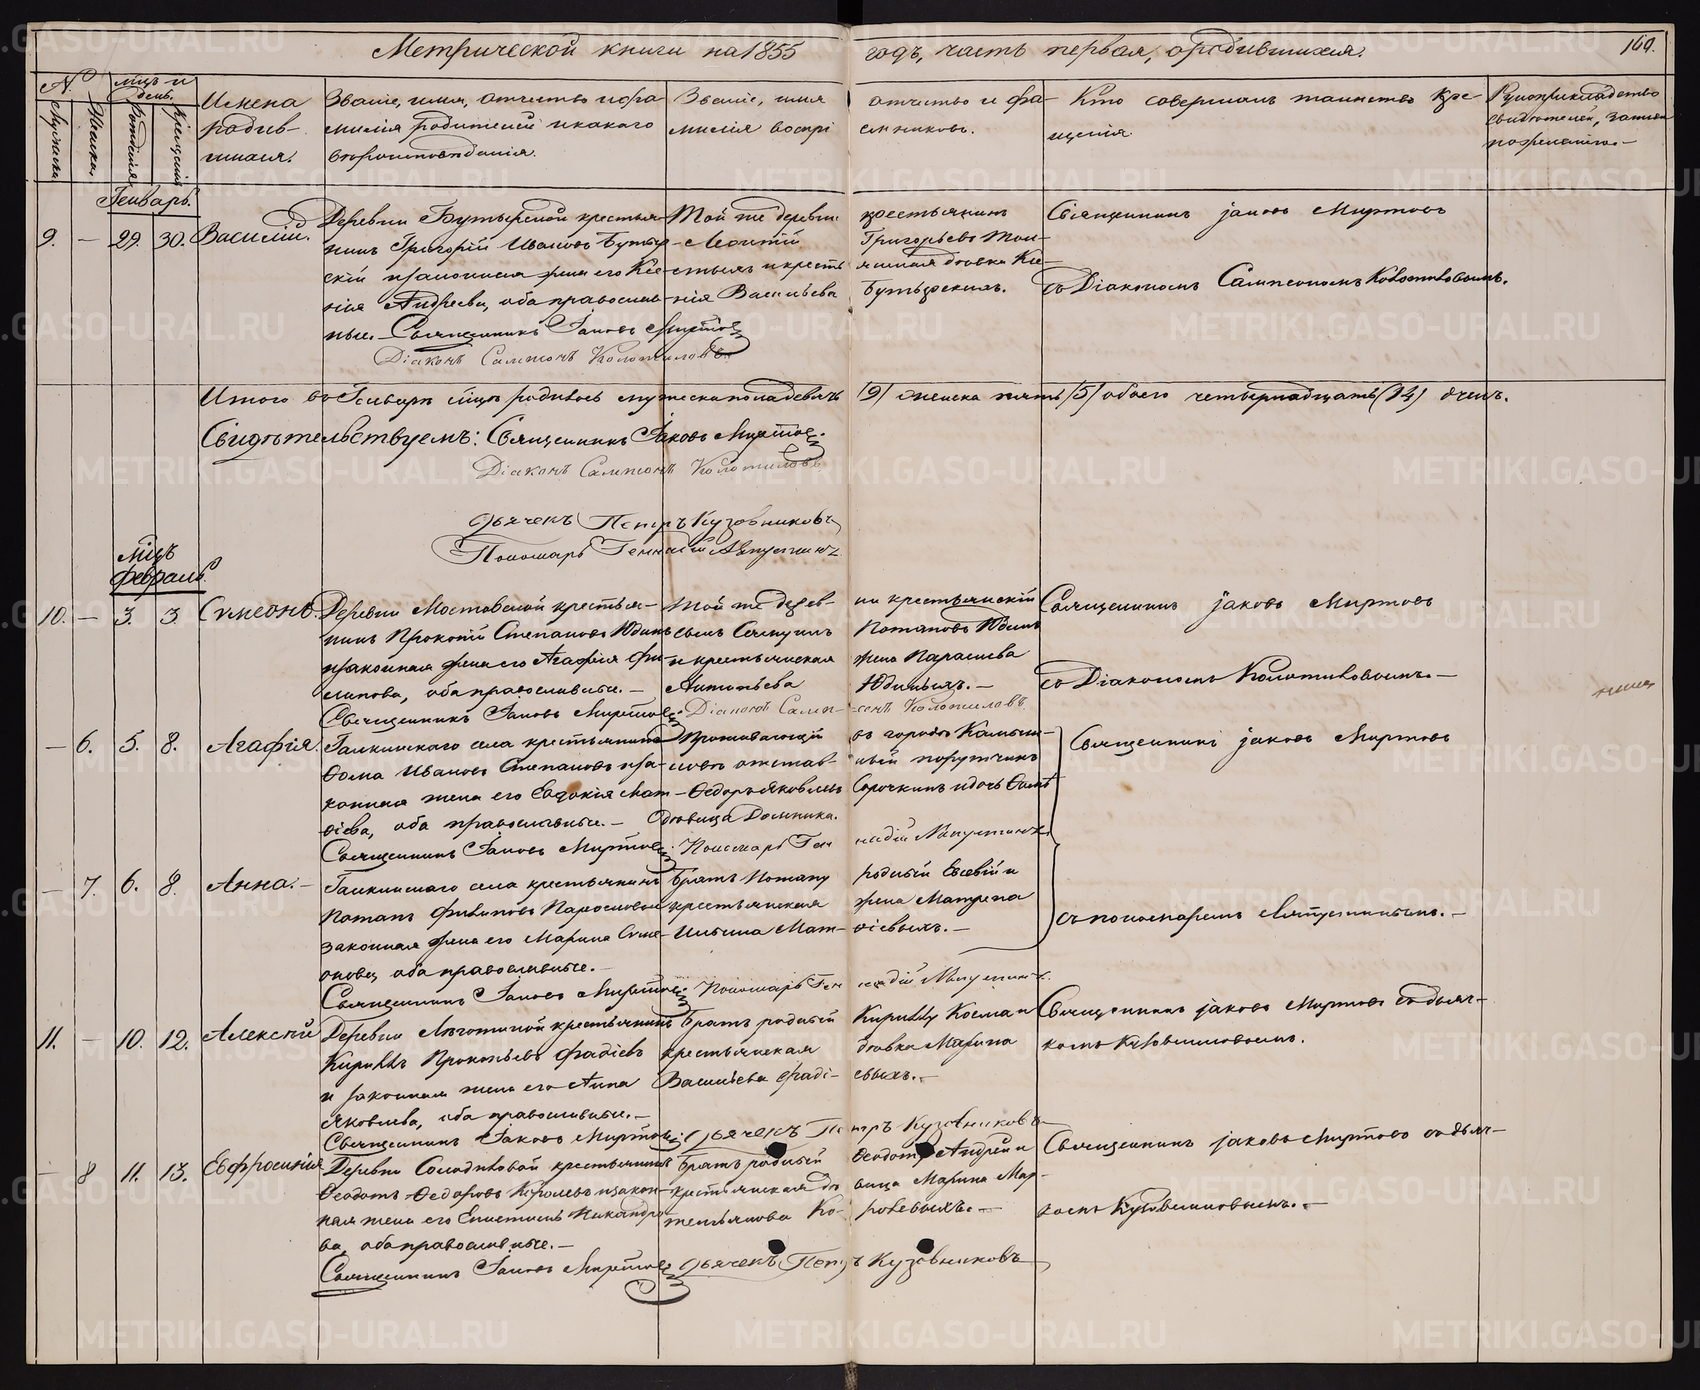 Метрической книги на 1855 годъ, часть первая, о родившихся.
169.
№
Мужеска.
Женска.
мѣцъ и день.
Рожденія
Крещенія
Имена родив-
шихся.
Званіе, имя, отчество и фа-
милія родителей и какого
вѣроисповѣданія.
Званіе, имя отчество и фа-
милія воспрі емниковъ.
Кто совершалъ таинство кре-
щенія
Рукоприкладство
свидѣтелей, записи
по желанію.
Генварь.
9. — 29. 30. Василій.
Деревни крестья-
нинъ Григорій Ивановъ Бутыр-
скій и законная жена его Ксе-
нія Андреева, оба православ-
ные. Священникъ Іаковъ Миртовъ
Діаконъ Сампсонъ Колотиловъ
Той же деревни крестьянинъ
Леонтій Григорьевъ
и кресть янская дѣвка Ксе-
нія Васильева Бутырскихъ.
Священникъ Іаковъ Миртовъ
съ Діакономъ Сампсономъ Колотиловымъ.
Итого въ Генварѣ мѣцѣ родилось мужеска пола девять (9) женска пять (5) обоего четырнадцать (14)
Свидѣтельствуемъ: Священникъ Іаковъ Миртовъ.
Діаконъ Сампсонъ Колотиловъ
Дьячекъ Петръ Кузовниковъ
Пономарь Геннадій
Мѣцъ
февраль.
10. — 3. 3. Сѵмеонъ.
Деревни Мостовской крестья-
нинъ Прокопій Степановъ Юдинъ
и законная жена его Агафія Фи-
липова, оба православные. —
Священникъ Іаковъ Миртовъ.
Той же дерев- ни крестьянскій
сынъ Потаповъ Юдинъ
и крестьянская жена Параскева
Антипьева Юдиныхъ. —
Діаконъ Самп- сонъ Колотиловъ
Священникъ Іаковъ Миртовъ
съ Діакономъ Колотиловымъ. —
— 6. 5. 8. Агафія.
Галкинскаго села крестьянина
Ѳома Ивановъ Степановъ и за-
конная жена его Евдокія Мат-
ѳіева, оба православные. —
Священникъ Іаковъ Миртовъ.
Проживающій въ городѣ Камыш-
ловѣ отстав- ный порутчикъ
Ѳедоръ Яковлевъ Сорочкинъ и дочь
вдовица Домника.
Пономарь Ген надій
Священникъ Іаковъ Миртовъ
— 7. 6. 8. Анна. —
Галкинскаго села крестьянинъ
Потапъ Филиповъ
законная жена его Марина Сѵме-
онова, оба православные. —
Священникъ Іаковъ Миртовъ.
Братъ Потапу родный Евсевій и
крестьянская жена Матрена
Ильина Мат- ѳіевыхъ. —
Пономарь Ген надій
съ пономаремъ
11. — 10. 12. Алексѣй
Деревни крестьянинъ
Кириллъ Прокопьевъ Фадѣевъ
и законная жена его Анна
Яковлева, оба православные. —
Священникъ Іаковъ Миртовъ.
Братъ родный Кириллу Косма и
крестьянская дѣвка Марина
Васильева Фадѣ- евыхъ. —
Дьячекъ Пе тръ Кузовниковъ
Священникъ Іаковъ Миртовъ съ дьяч-
комъ Кузовниковымъ.
— 8 11. 13. Евфросинія
Деревни Солодиловой крестьянинъ
Ѳеодотъ Ѳедоровъ Королевъ и закон-
ная жена его Епистимія Никандро-
ва, оба православные. —
Священникъ Іаковъ Миртовъ
Братъ родный Ѳеодоту Андрей и
крестьянская вдо вица Марина
Ко- ролевыхъ. —
Дьячекъ Петръ Кузовниковъ
Священникъ Іаковъ Миртовъ съ дьяч-
комъ Кузовниковымъ. —
METRIKI.GASO-URAL.RU